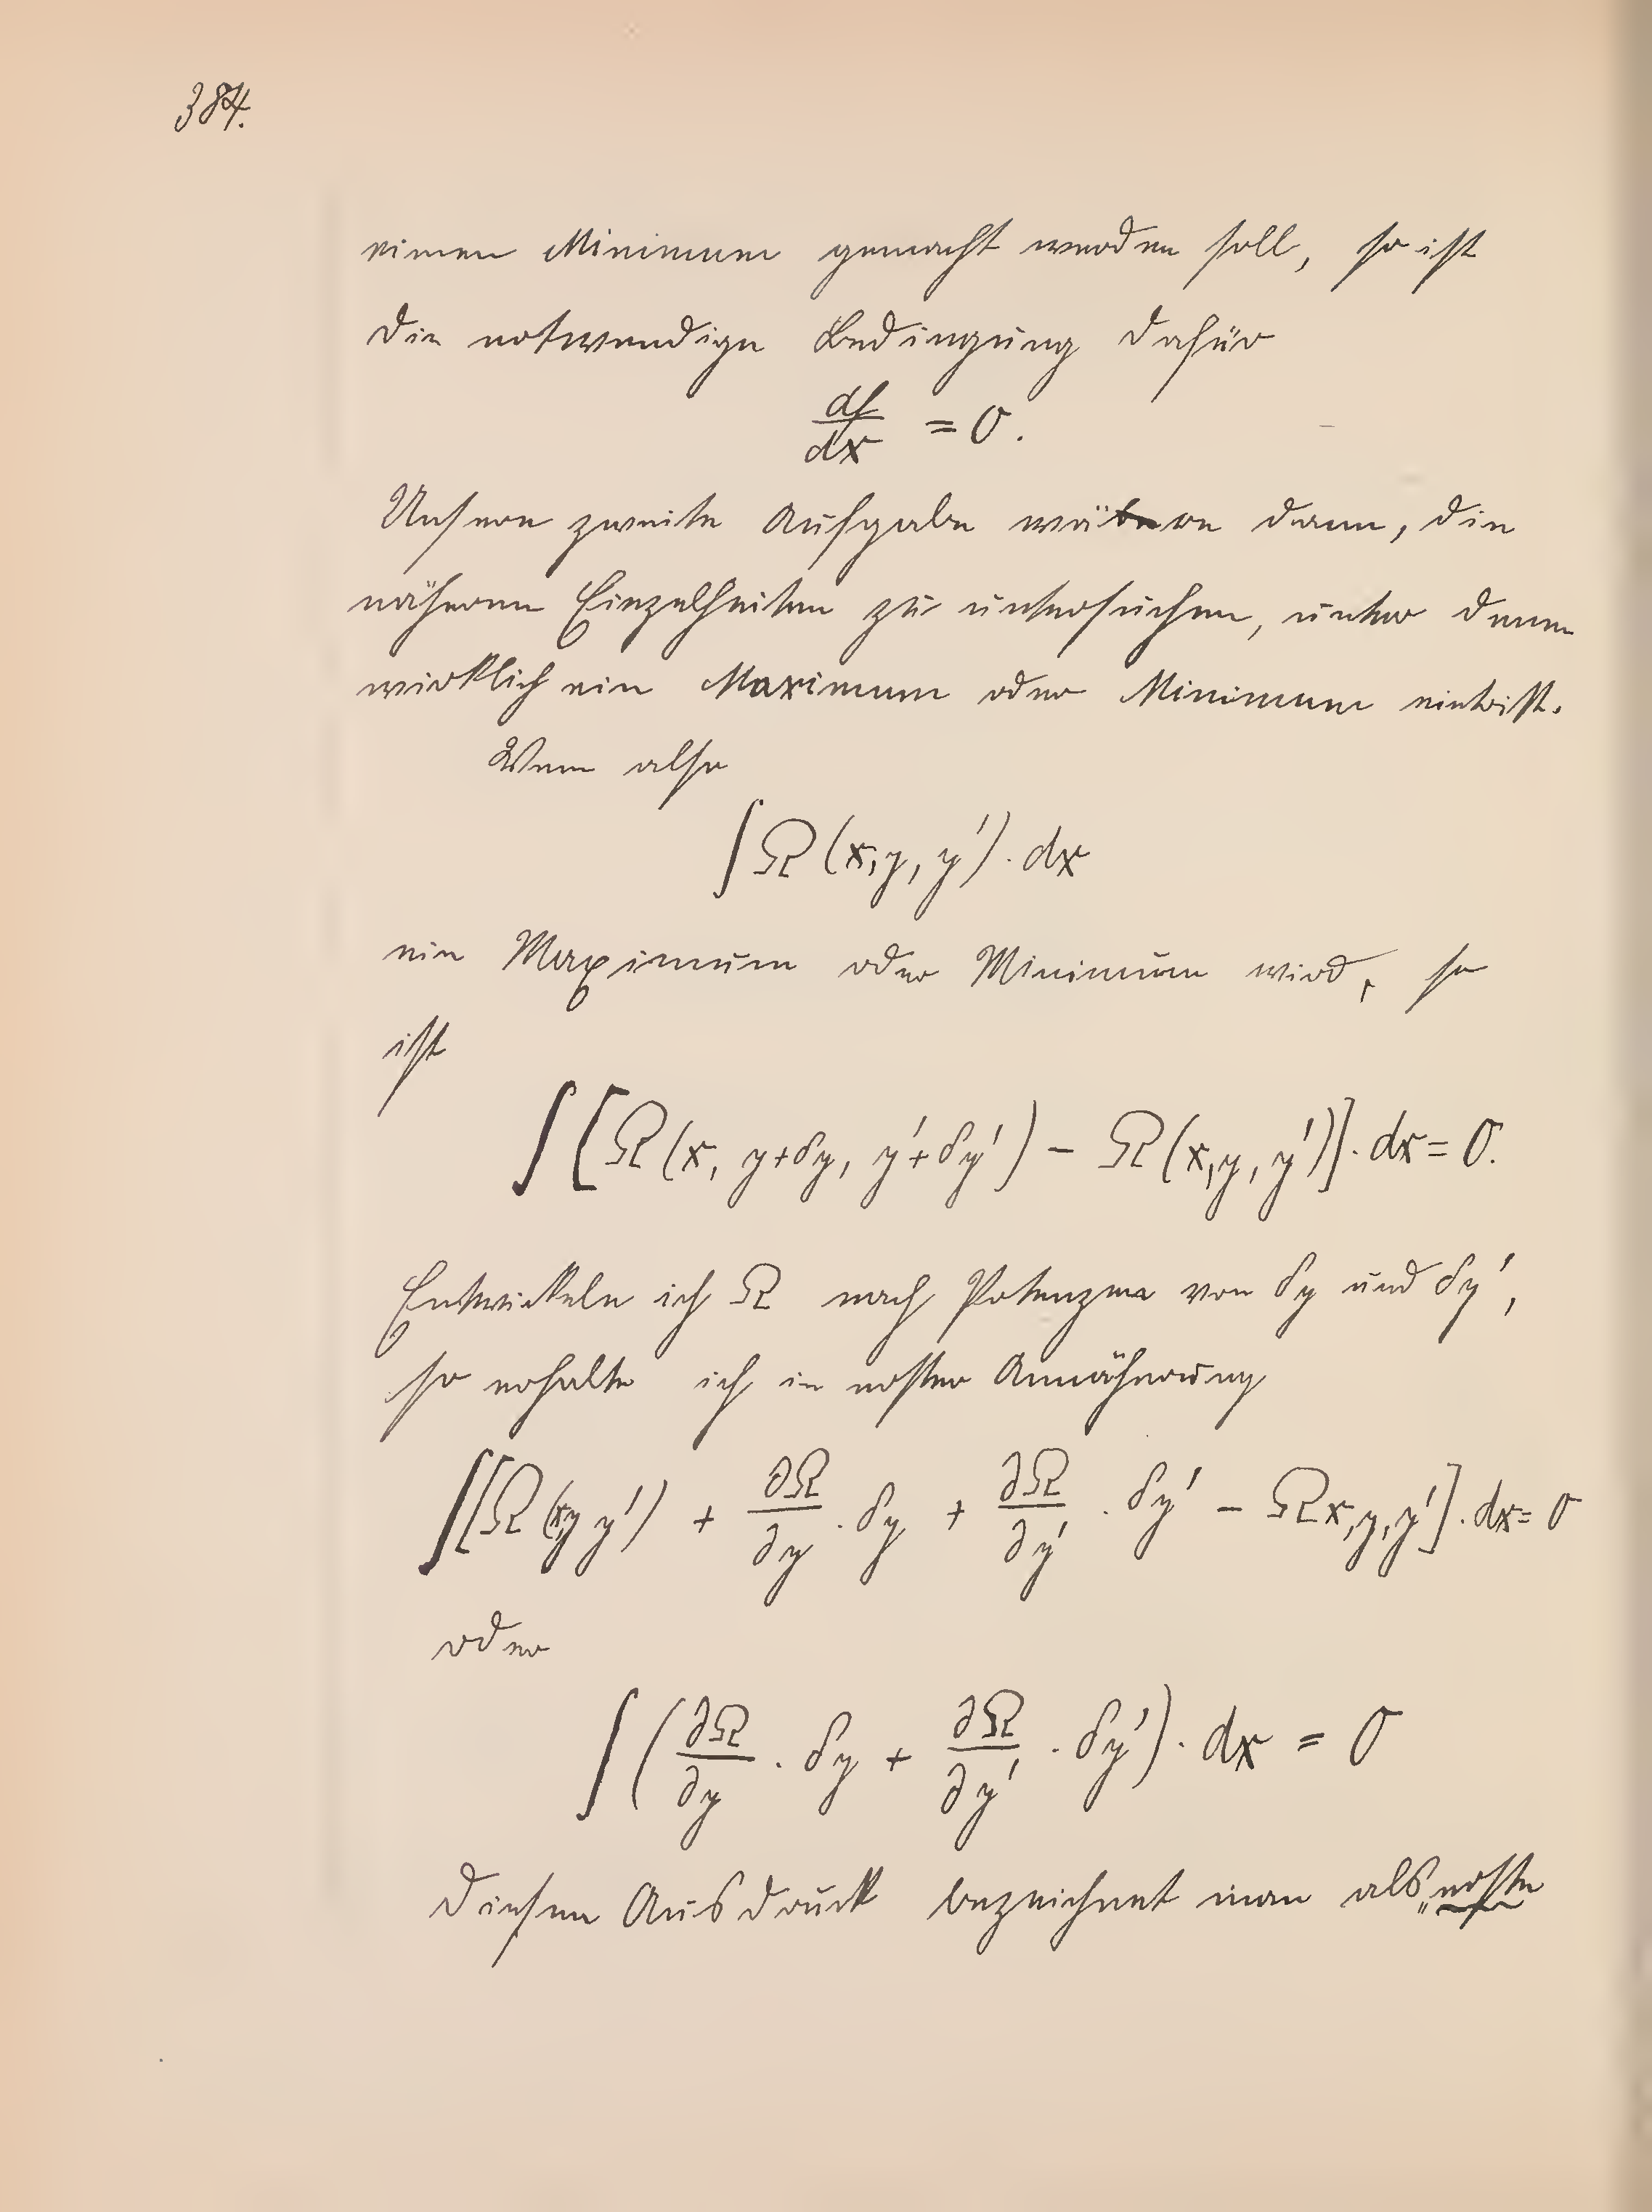 384.
einem Minimum gemacht werden soll, so ist
die notwendige Bedingung dafür
df/dx = 0.
Unsere zweite Aufgabe wäre dann, die
näheren Einzelheiten zu untersuchen, unter denen
wirklich ein Maximum oder Minimum eintritt.
Wenn also
∫Ω(x,y,y')·dx
ein Maximum oder Minimum wird, so
ist
∫[Ω(x, y+δy, y'+δy') − Ω(x,y,y')]·dx = 0.
Entwickeln ich Ω nach Potenzen von δy und δy',
so erhalte ich in erster Annäherung
∫[Ω(x,y y') + ∂Ω/∂y · δy + ∂Ω/∂y' · δy' − Ωx,y,y']·dx = 0
oder
∫(∂Ω/∂y · δy + ∂Ω/∂y' · δy')·dx = 0
Diesen Ausdruck bezeichnet man als „erste